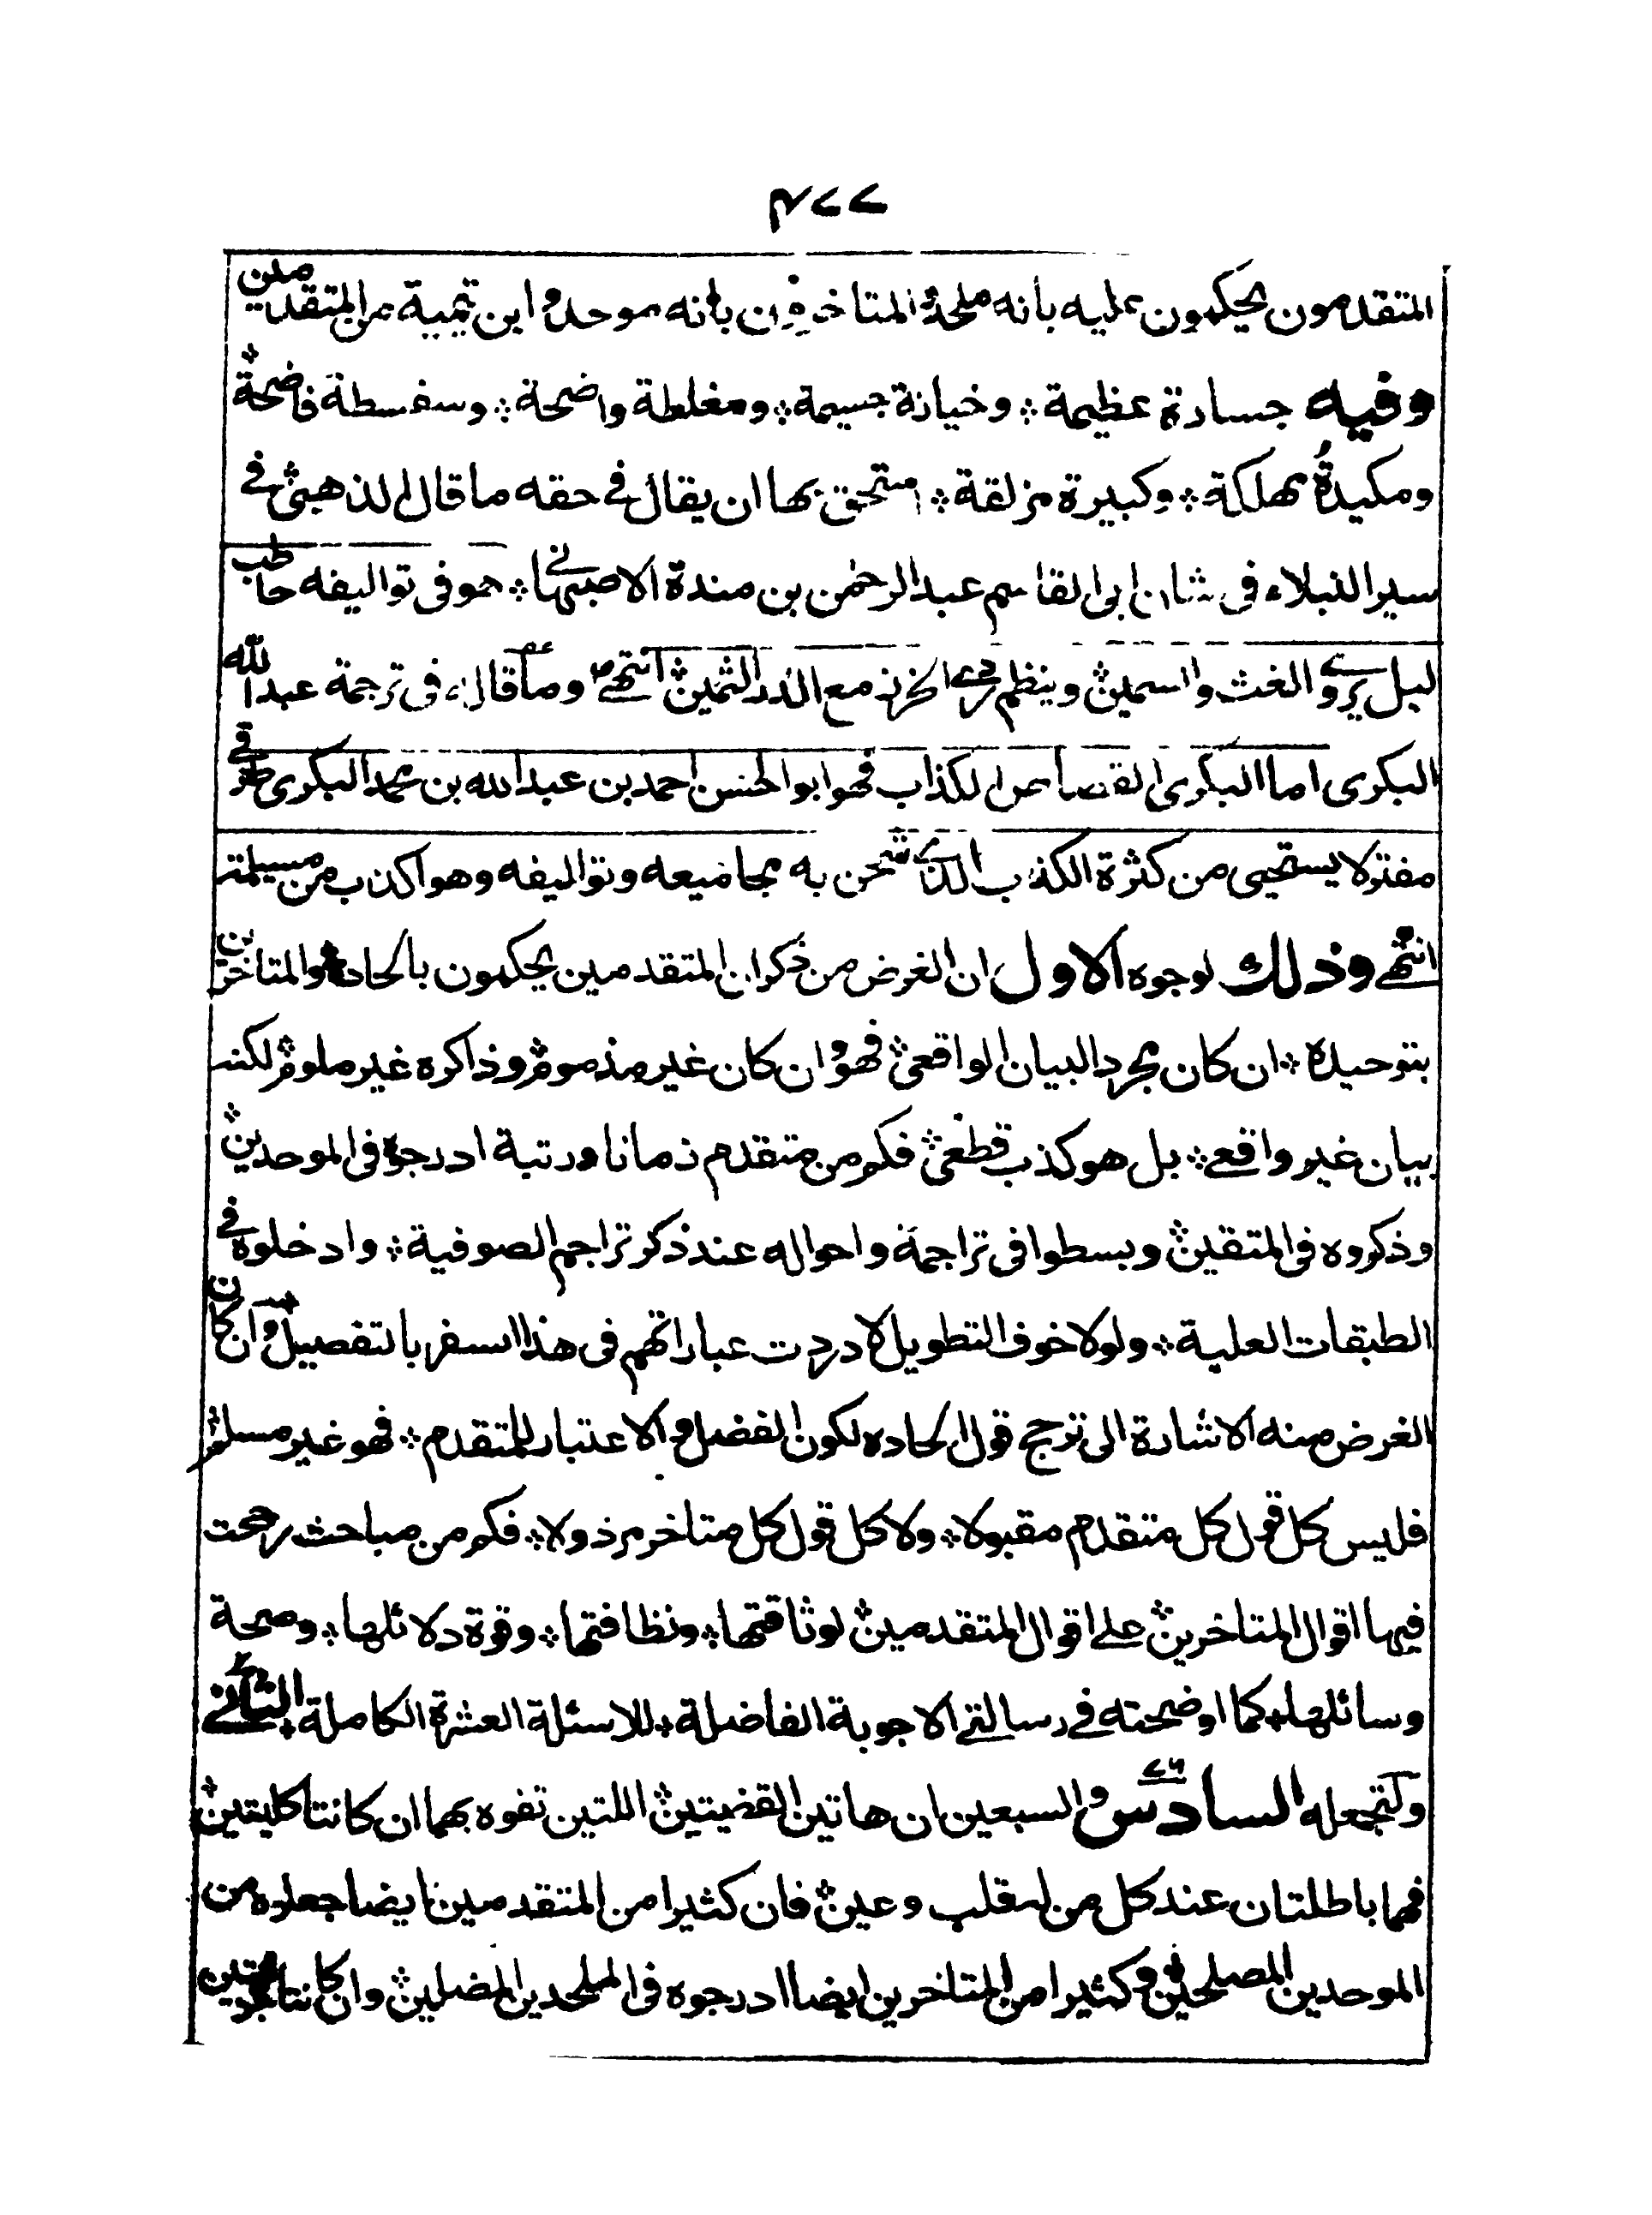 ٤٧٧
المتقدمون يحكمون عليه بانه ملحد والمتاخرون بانه موحد وابن تيمية من المتقدمين
وفيه جسارة عظيمة ؞ وخيانة جسيمة ؞ ومغلطة واضحة ؞ وسفسطة فاضحة ؞
ومكيدة مهلكة ؞ وكبيرة مزلقة ؞ استحق بها ان يقال في حقه ما قال الذهبي ؞ في
سير النبلاء في شان ابي القاسم عبد الرحمن بن مندة الاصبهاني ؞ هو في تواليفه حاطب
ليل يروي الغث والسمين ؞ وينظم ردي الخرز مع الدر الثمين ؞ انتهى وما قال في ترجمة عبد الله
البكري اما البكري القصاص الكذاب فهو ابو الحسن احمد بن عبد الله بن محمد البكري طرقي
مفتر لا يستحيي من كثرة الكذب الذي شحن به مجاميعه وتواليفه وهو اكذب من مسيلمة
انتهى وذلك لوجوه الاول ان الغرض من ذكر ان المتقدمين يحكمون بالحاده والمتاخرين
بتوحيده ؞ ان كان مجرد البيان الواقعي ؞ فهو وان كان غير مذموم ؞ وذاكره غير ملوم ؞ لكنه
بيان غير واقعي ؞ بل هو كذب قطعي ؞ فكم من متقدم زمانا ورتبة ادرجوه في الموحدين ؞
وذكروه في المتقين ؞ وبسطوا في تراجمة واحواله عند ذكر تراجم الصوفية ؞ وادخلوه في
الطبقات العلية ؞ ولولا خوف التطويل لاوردت عباراتهم في هذا السفر بالتفصيل ؞ وان كان
الغرض منه الاشارة الى ترجيح قول الحاده لكون الفضل والاعتبار للمتقدم ؞ فهو غير مسلم ؞
فليس كل قول كل متقدم مقبولا ؞ ولا كل قول كل متاخر مرذولا ؞ فكم من مباحث رجحت
فيها اقوال المتاخرين ؞ على اقوال المتقدمين ؞ لوثاقتها ؞ ونظافتها ؞ وقوة دلائلها ؞ وصحة
وسائلها ؞ كما اوضحته في رسالتي الاجوبة الفاضلة ؞ للاسئلة العشرة الكاملة ؞ الثاني
ولنجعله السادس والسبعين ٧٦ ان هاتين القضيتين ؞ اللتين تفوه بهما ان كانتا كليتين ؞
فهما باطلتان عند كل من له قلب وعين ؞ فان كثيرا من المتقدمين ايضا جعلوه من
الموحدين المصلحين ؞ وكثيرا من المتاخرين ايضا ادرجوه في الملحدين المضلين ؞ وان كانتا جزئيتين